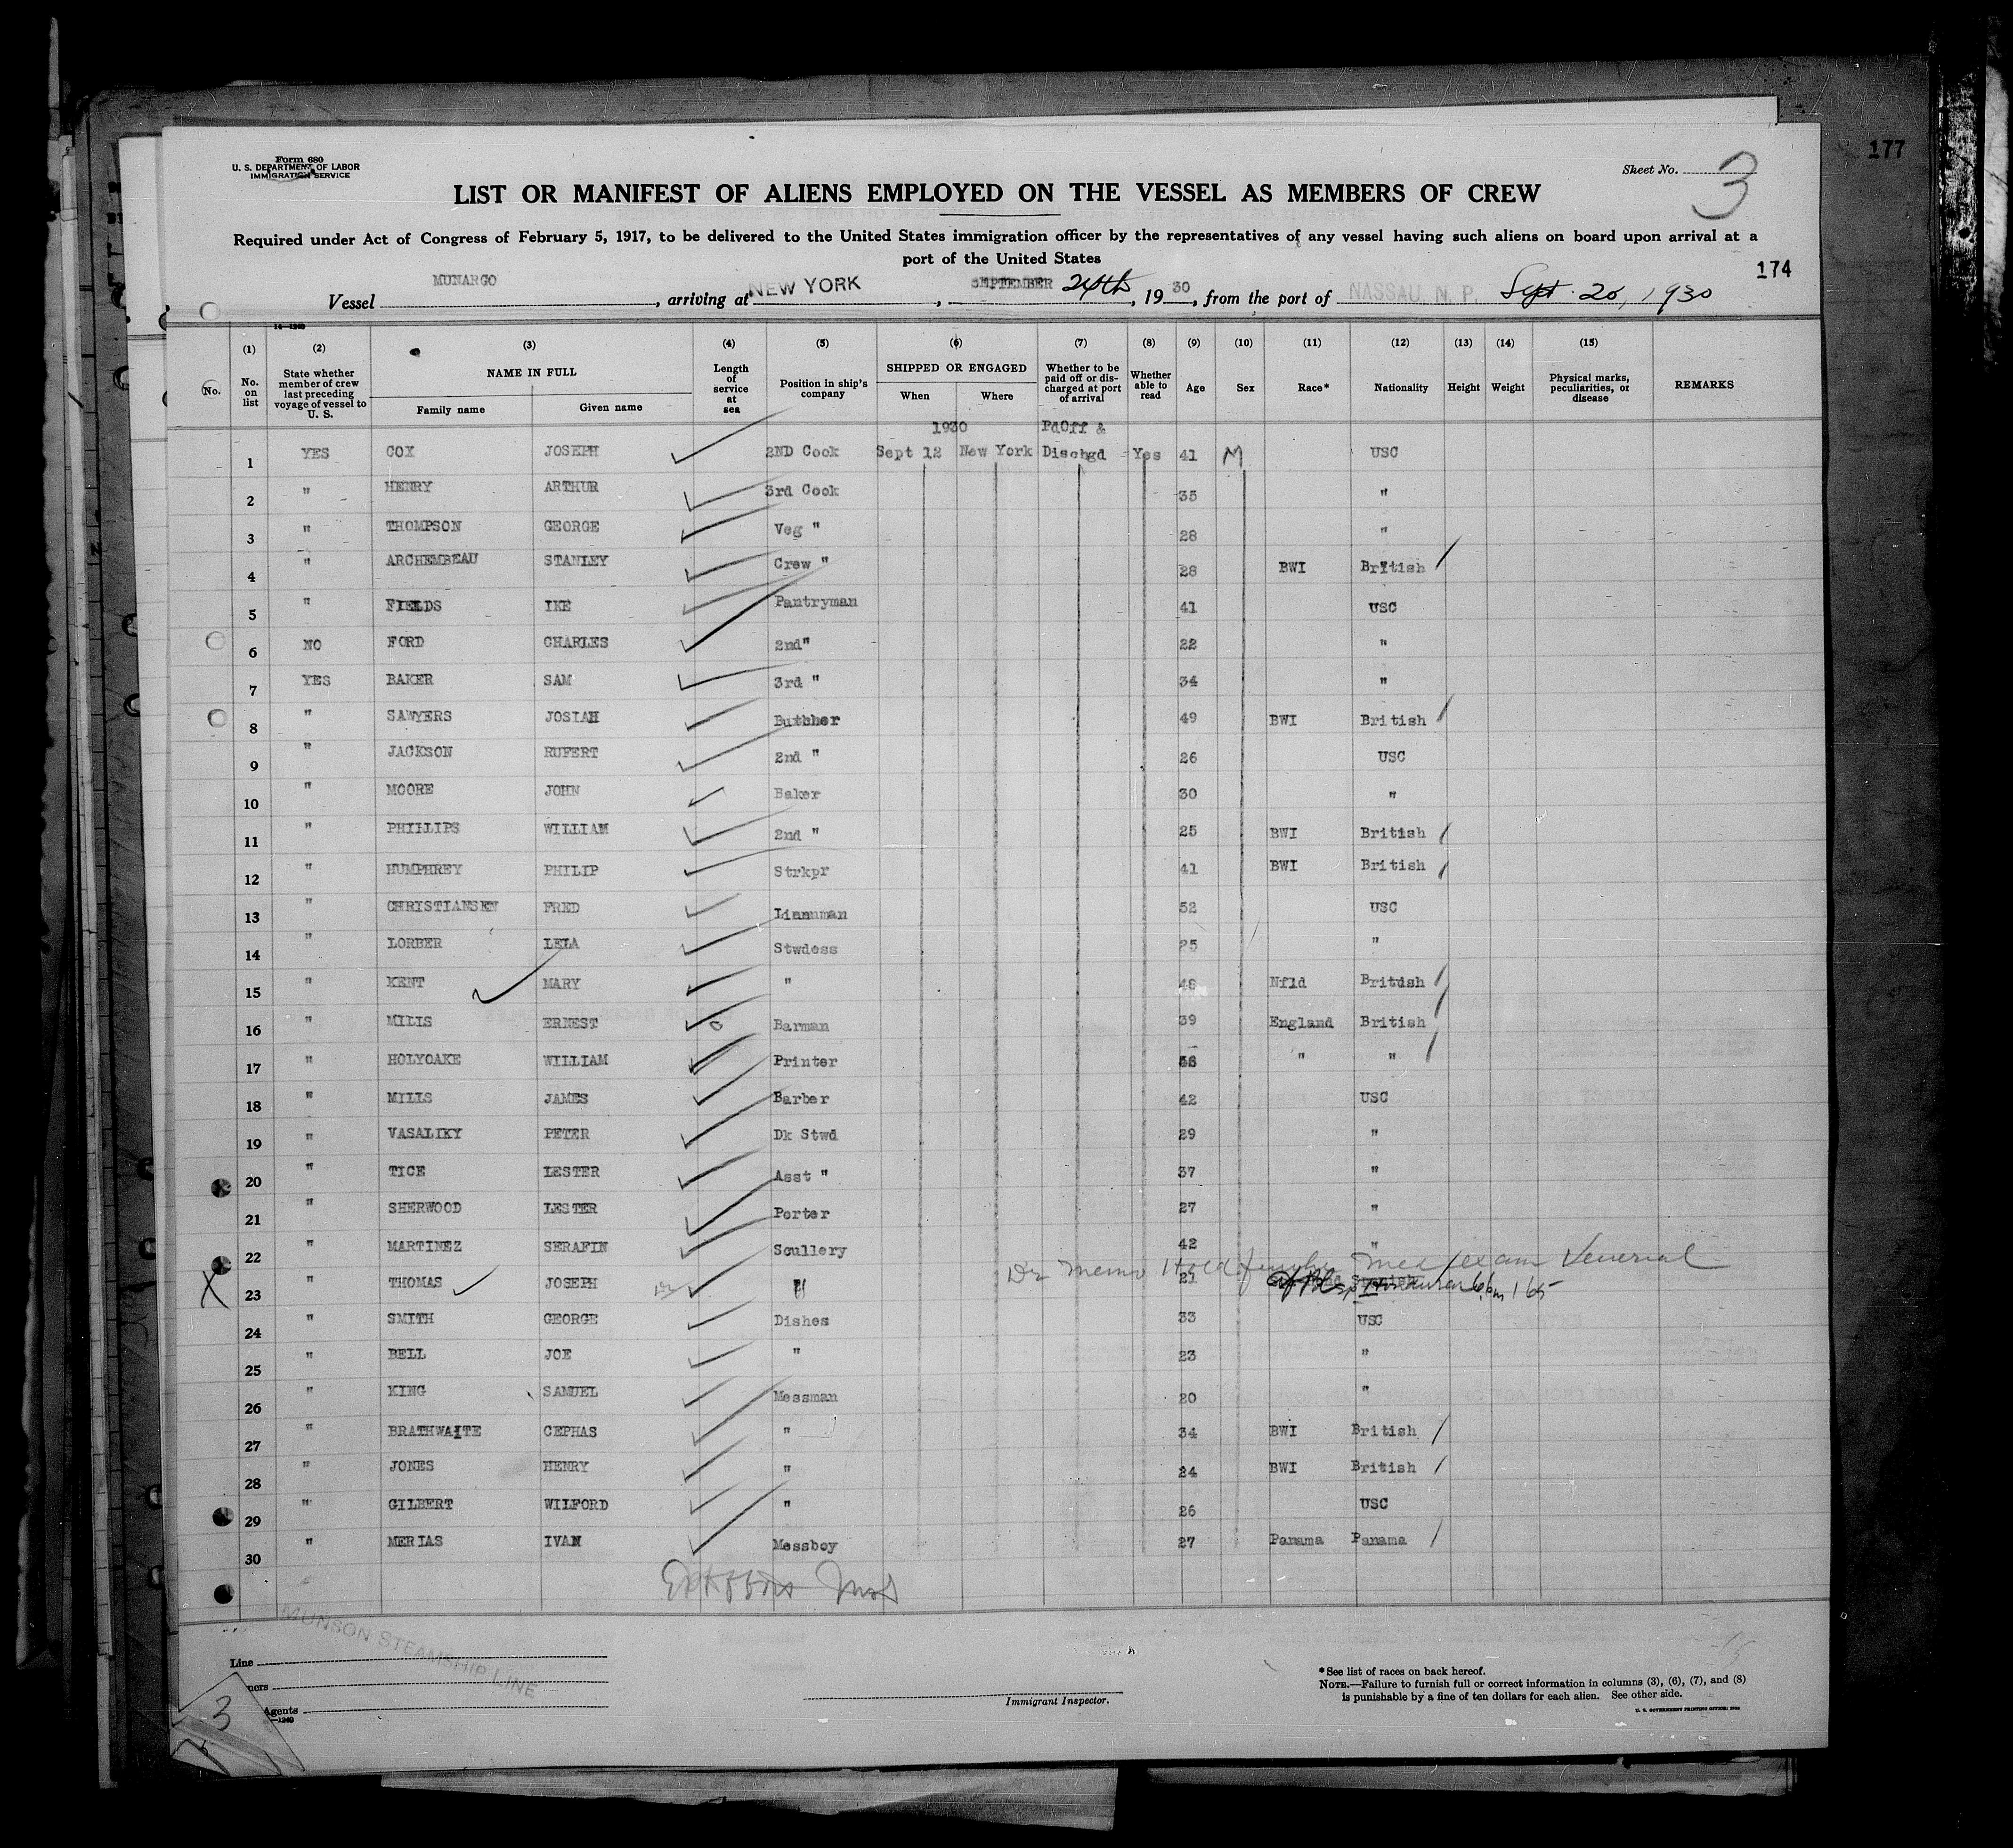 177
Form 680
U. S. DEPARTMENT OF LABOR
IMMIGRATION SERVICE
Sheet No. 3
LIST OR MANIFEST OF ALIENS EMPLOYED ON THE VESSEL AS MEMBERS OF CREW
Required under Act of Congress of February 5, 1917, to be delivered to the United States immigration officer by the representatives of any vessel having such aliens on board upon arrival at a
port of the United States
174
Vessel MUNARGO, arriving at NEW YORK, SEPTEMBER 24th, 1930, from the port of NASSAU, N. P. Sept. 20, 1930
14—1240
(1) (2) (3) (4) (5) (6) (7) (8) (9) (10) (11) (12) (13) (14) (15)
No. No. on list State whether member of crew last preceding voyage of vessel to U. S. NAME IN FULL Family name Given name Length of service at sea Position in ship's company SHIPPED OR ENGAGED When Where Whether to be paid off or discharged at port of arrival Whether able to read Age Sex Race* Nationality Height Weight Physical marks, peculiarities, or disease REMARKS
1930 PdOff &
1 YES COX JOSEPH 2ND Cook Sept 12 New York Dischgd Yes 41 M USC
2 " HENRY ARTHUR 3rd Cook 35 "
3 " THOMPSON GEORGE Veg " 28 "
4 " ARCHEMBEAU STANLEY Crew " 28 BWI British
5 " FIELDS IKE Pantryman 41 USC
6 NO FORD CHARLES 2nd" 22 "
7 YES BAKER SAM 3rd " 34 "
8 " SAWYERS JOSIAH Butcher 49 BWI British
9 " JACKSON RUFERT 2nd " 26 USC
10 " MOORE JOHN Baker 30 "
11 " PHILLIPS WILLIAM 2nd " 25 BWI British
12 " HUMPHREY PHILIP Strkpr 41 BWI British
13 " CHRISTIANSEN FRED Linnuman 52 USC
14 " LORBER LELA Stwdess 25 "
15 " KENT MARY " 48 Nfld British
16 " MILIS ERNEST Barman 39 England British
17 " HOLYOAKE WILLIAM Printer 56 " "
18 " MILLS JAMES Barber 42 USC
19 " VASALIKY PETER Dk Stwd 29 "
20 " TICE LESTER Asst " 37 "
21 " SHERWOOD LESTER Porter 27 "
22 " MARTINEZ SERAFIN Scullery 42 "
Dr Memo Hold further med exam Venerial
23 " THOMAS JOSEPH " 21 Spanish 165
24 " SMITH GEORGE Dishes 33 USC
25 " BELL JOE " 23 "
26 " KING SAMUEL Messman 20 "
27 " BRATHWAITE CEPHAS " 34 BWI British
28 " JONES HENRY " 24 BWI British
29 " GILBERT WILFORD " 26 USC
30 " MERIAS IVAN Messboy 27 Panama Panama
MUNSON STEAMSHIP LINE
Line
Agents
3
Immigrant Inspector.
*See list of races on back hereof.
NOTE.—Failure to furnish full or correct information in columns (3), (6), (7), and (8)
is punishable by a fine of ten dollars for each alien. See other side.
U. S. GOVERNMENT PRINTING OFFICE: